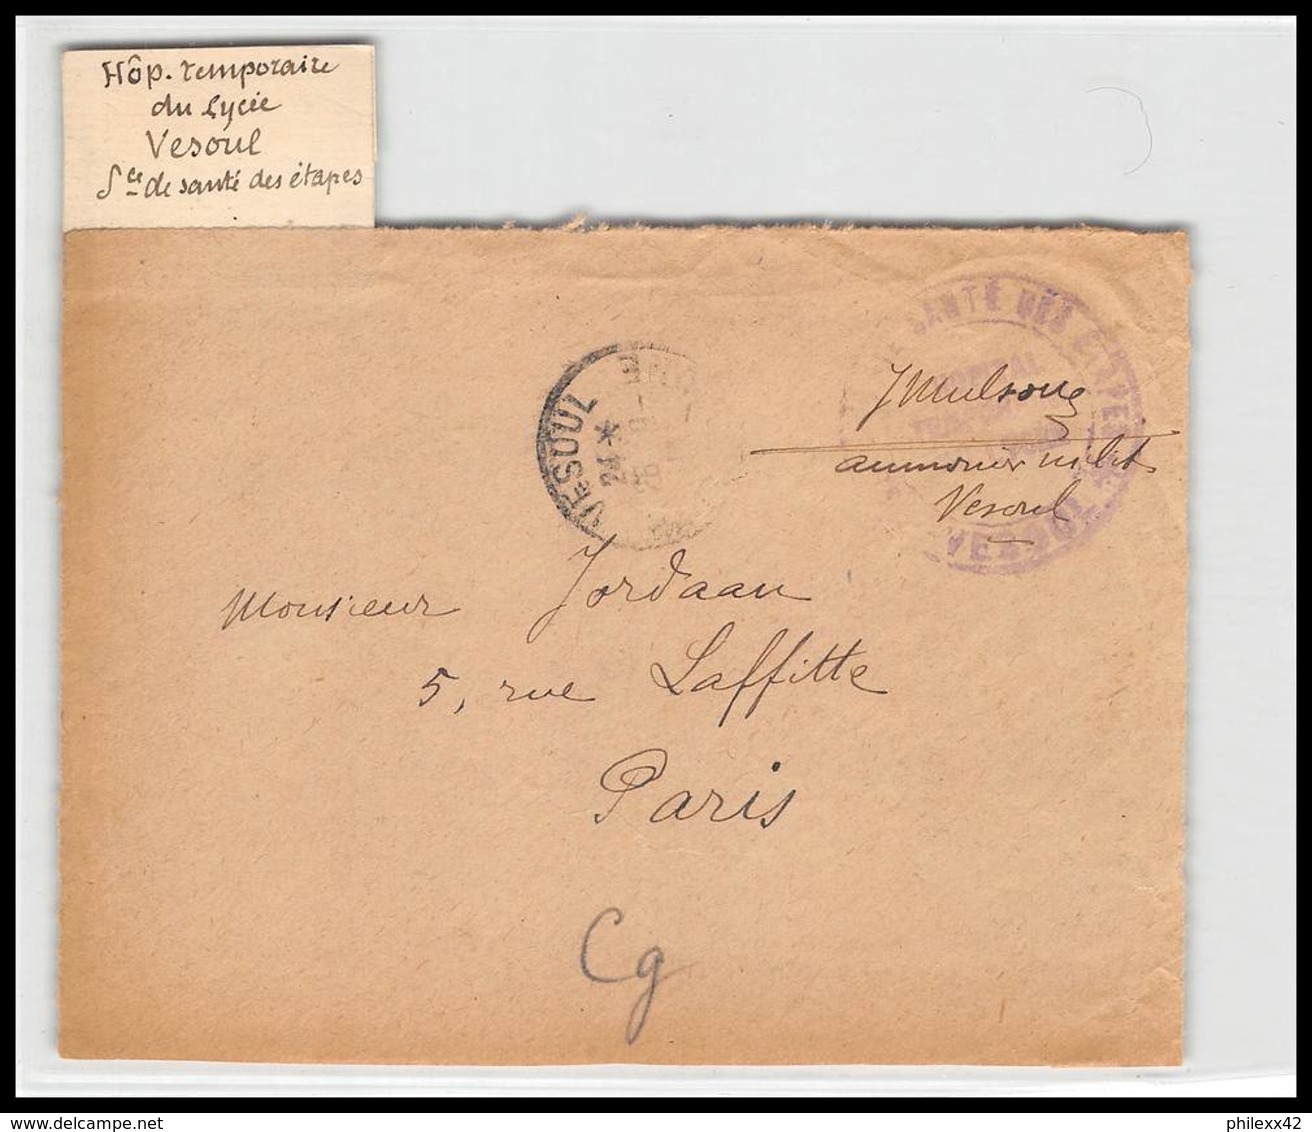 Hôp. temporaire
du Lycée
Vesoul
Sce de santé des étapes
SANTÉ DES ETAPES
VESOUL
VESOUL
24 *
aumonier milit
Vesoul
Monsieur Jordaan
5, rue Laffitte
Paris
Cg
www.delcampe.net
philexx42